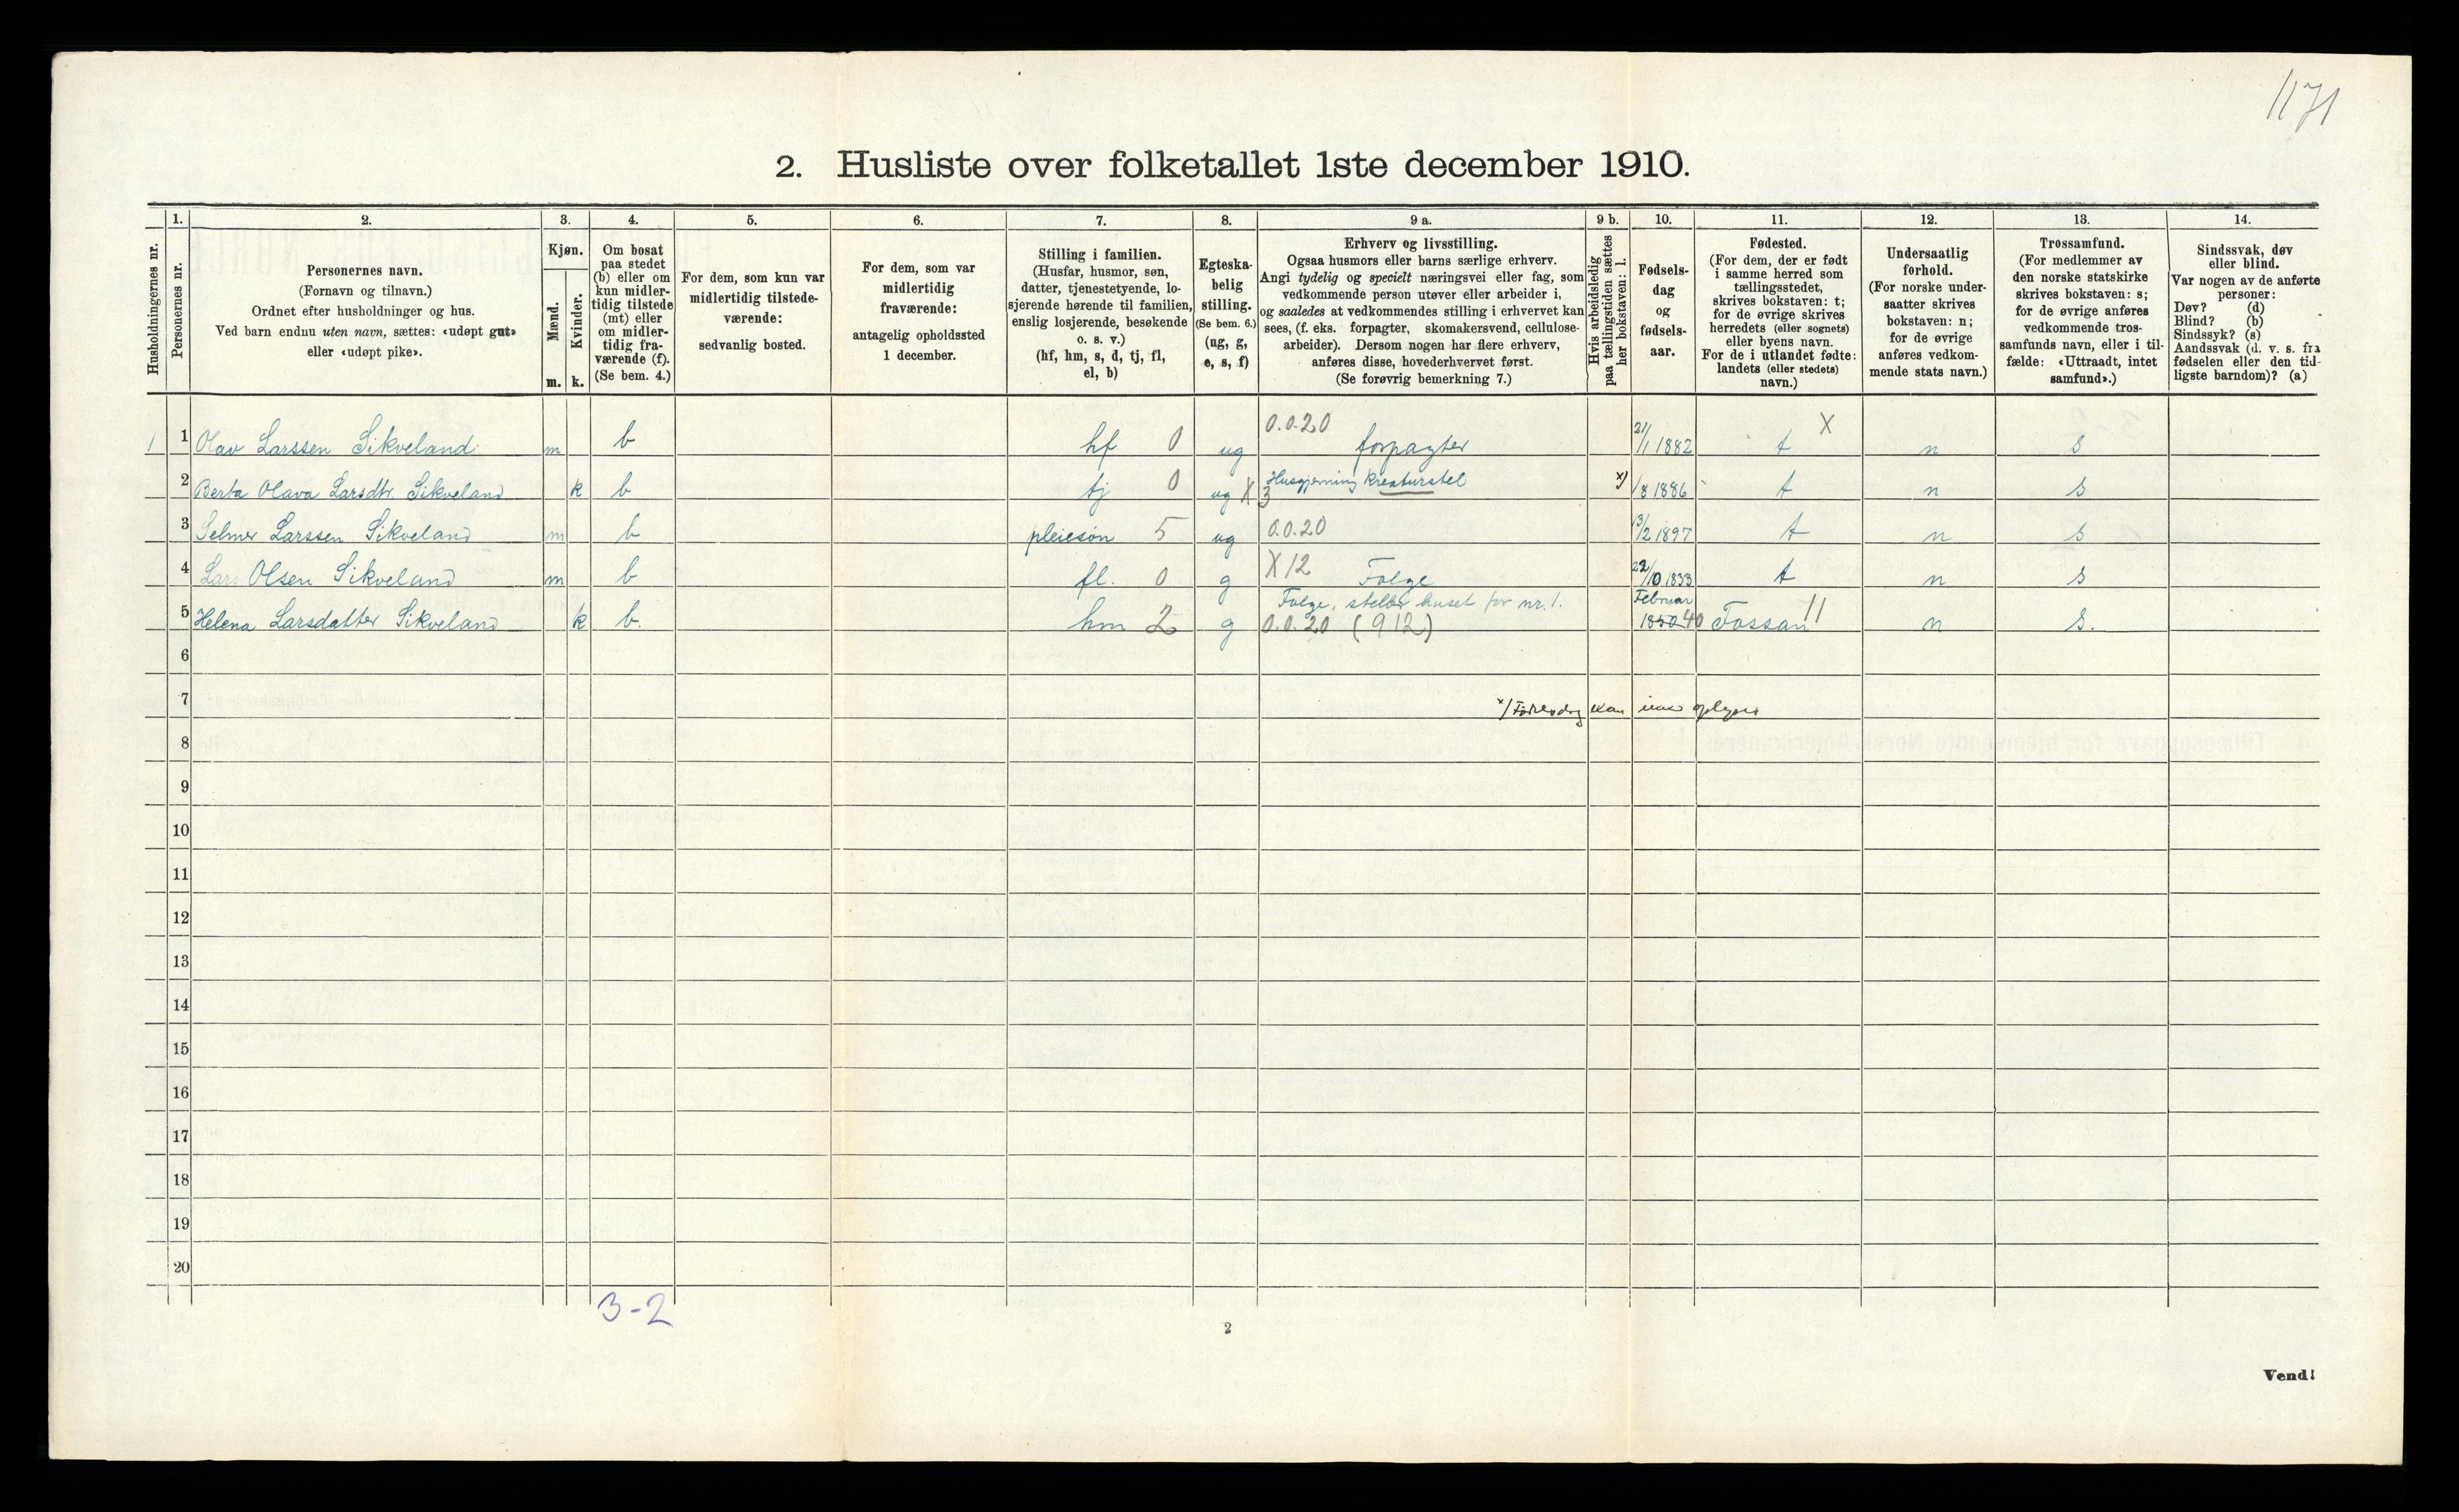 1171
2. Husliste over folketallet 1ste december 1910.
1. 2. 3. 4. 5. 6. 7. 8. 9 a. 9 b. 10. 11. 12. 13. 14.
Husholdningernes nr.
Personernes nr.
Personernes navn.
(Fornavn og tilnavn.)
Ordnet efter husholdninger og hus.
Ved barn endnu uten navn, sættes: «udøpt gut»
eller «udøpt pike».
Kjøn.
Mænd.
Kvinder.
m. k.
Om bosat
paa stedet
(b) eller om
kun midler-
tidig tilstede
(mt) eller
om midler-
tidig fra-
værende (f).
(Se bem. 4.)
For dem, som kun var
midlertidig tilstede-
værende:
sedvanlig bosted.
For dem, som var
midlertidig
fraværende:
antagelig opholdssted
1 december.
Stilling i familien.
(Husfar, husmor, søn,
datter, tjenestetyende, lo-
sjerende hørende til familien,
enslig losjerende, besøkende
o. s. v.)
(hf, hm, s, d, tj, fl,
el, b)
Egteska-
belig
stilling.
(Se bem. 6.)
(ug, g,
e, s, f)
Erhverv og livsstilling.
Ogsaa husmors eller barns særlige erhverv.
Angi tydelig og specielt næringsvei eller fag, som
vedkommende person utøver eller arbeider i,
og saaledes at vedkommendes stilling i erhvervet kan
sees, (f. eks. forpagter, skomakersvend, cellulose-
arbeider). Dersom nogen har flere erhverv,
anføres disse, hovederhvervet først.
(Se forøvrig bemerkning 7.)
Hvis arbeidsledig
paa tællingstiden sættes
her bokstaven: l.
Fødsels-
dag
og
fødsels-
aar.
Fødested.
(For dem, der er født
i samme herred som
tællingsstedet,
skrives bokstaven: t;
for de øvrige skrives
herredets (eller sognets)
eller byens navn.
For de i utlandet fødte:
landets (eller stedets)
navn.)
Undersaatlig
forhold.
(For norske under-
saatter skrives
bokstaven: n;
for de øvrige
anføres vedkom-
mende stats navn.)
Trossamfund.
(For medlemmer av
den norske statskirke
skrives bokstaven: s;
for de øvrige anføres
vedkommende tros-
samfunds navn, eller i til-
fælde: «Uttraadt, intet
samfund».)
Sindssvak, døv
eller blind.
Var nogen av de anførte
personer:
Døv? (d)
Blind? (b)
Sindssyk? (s)
Aandssvak (d. v. s. fra
fødselen eller den tid-
ligste barndom)? (a)
0.0.20 X
1 1 Olav Larssen Sikveland m b hf 0 ug forpagter 21/1 1882 t n s
2 Berta Olava Larsdtr. Sikveland k b tj 0 ug X 3 Husgjerning Kreaturstel x) /8 1886 t n s
3 Selmer Larssen Sikveland m b pleiesøn 5 ug 0.0.20 13/2 1897 t n s
4 Lars Olsen Sikveland m b fl. 0 g X 12 Følge 22/10 1833 t n s
Følge, steller huset for nr. 1. Februar
5 Helena Larsdatter Sikveland k b. hm 2 g 0.0.20 (912) 1850 40 Fossan 11 n s.
6
7 x) Fødselsdag kan ikke oplyses
8
9
10
11
12
13
14
15
16
17
18
19
20
3-2
2
Vend!